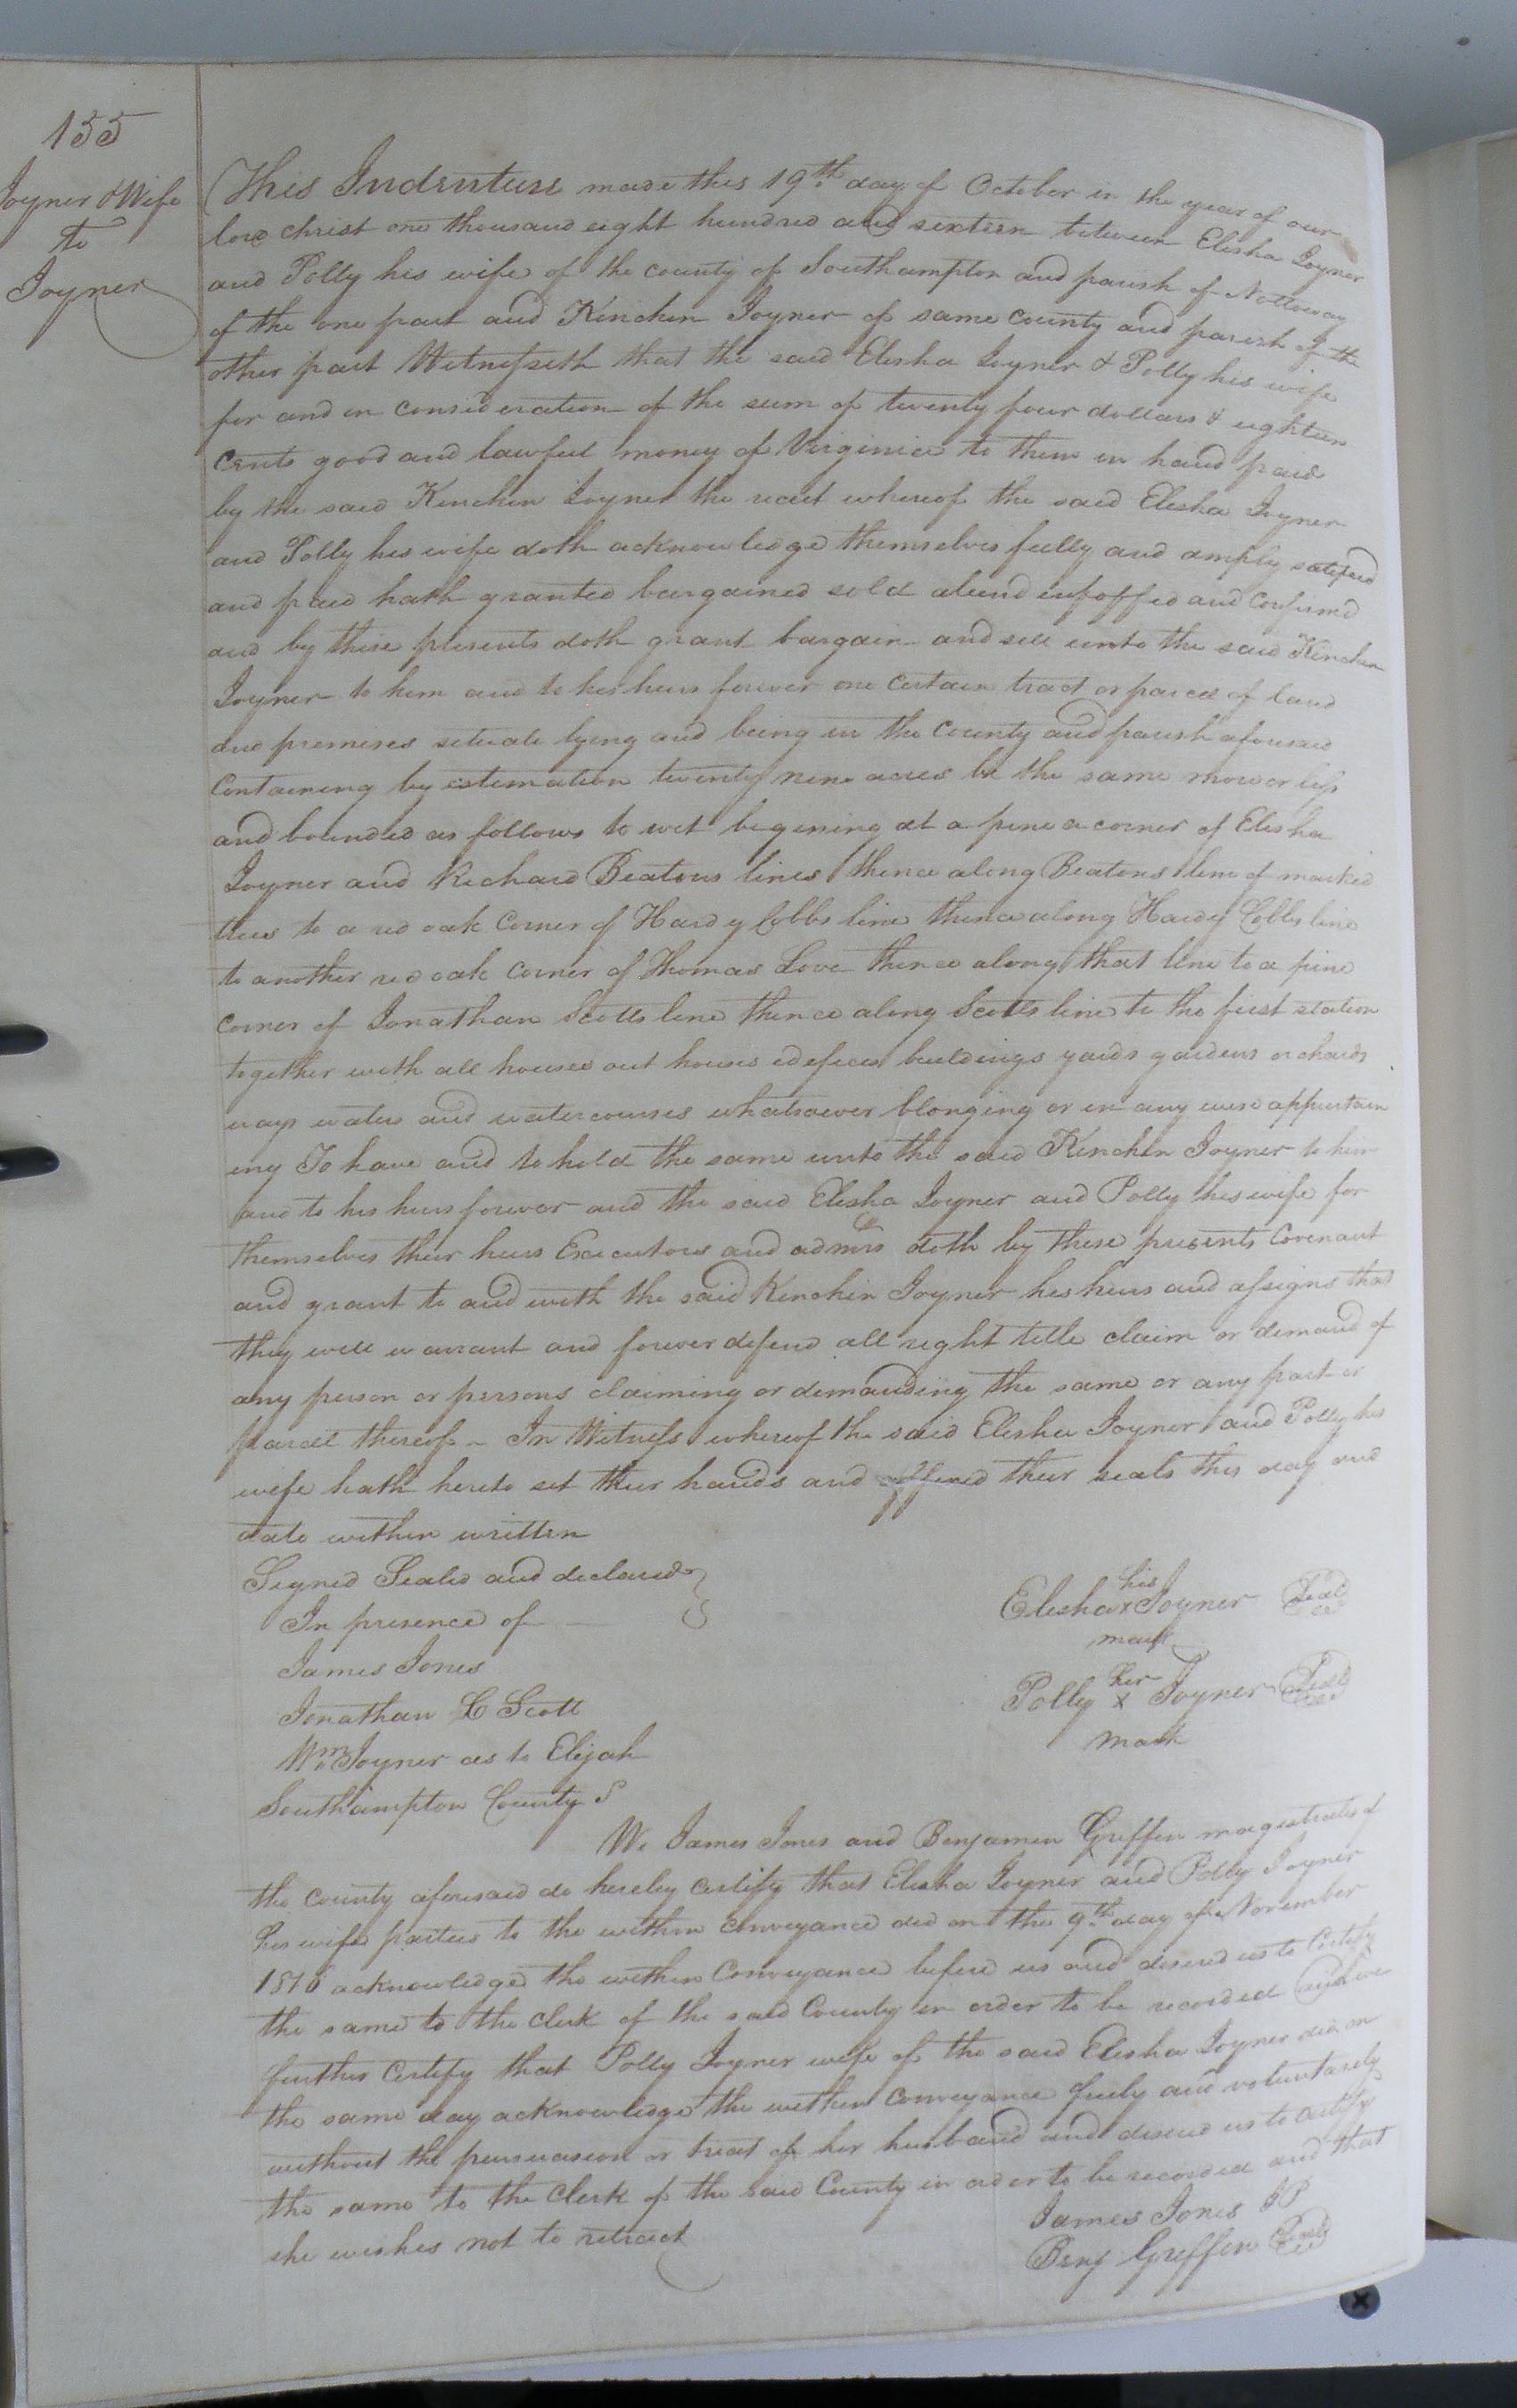 155
Joyner & Wife
to
Joyner
This Indenture made this 19th day of October in the year of our
lord christ one thousand eight hundred and sixteen between Elisha Joyner
and Polly his wife of the county of Southampton and parish of Nottoway
of the one part and Kinchen Joyner of same county and parish of the
other part Witnesseth that the said Elisha Joyner & Polly his wife
for and in consideration of the sum of twenty four dollars & eighteen
cents good and lawful money of Virginia to them in hand paid
by the said Kinchen Joyner the reciet whereof the said Elisha Joyner
and Polly his wife doth acknowledge themselves fully and amply satisfied
and paid hath granted bargained sold aliend infoffed and confirmd
and by these presents doth grant bargain and sell unto the said Kinchen
Joyner to him and to his heirs forever one certain tract or parcel of land
and premises situate lying and being in the county and parish aforesaid
Containing by estimation twenty nine acres be the same more or less
and bounded as follows to wit begining at a pine a corner of Elisha
Joyner and Richard Beatons lines thence along Beatons line of marked
trees to a red oak corner of Hardy Cobbs line thence along Hardy Cobbs line
to another red oak corner of Thomas Love thence along that line to a pine
corner of Jonathan Scotts line thence along Scotts line to the first station
together with all houses out houses edefices buildings yards gardens orchards
ways waters and watercourses whatsoever blonging or in any wise appertain
ing To have and to hold the same unto the said Kinchen Joyner to him
and to his heirs forever and the said Elisha Joyner and Polly his wife for
themselves their heirs Executors and admrs doth by these presents Covenant
and grant to and with the said Kinchin Joyner his heirs and assigns that
they will warrant and forever defend all right title claim or demand of
any person or persons claiming or demanding the same or any part or
parcel thereof - In Witness whereof the said Elisha Joyner and Polly his
wife hath hereto set their hands and affixed their seals this day and
date within written
Signed Sealed and declared
In presence of
James Jones
Jonathan L Scott
Wm Joyner as to Elijah
his
Elisha x Joyner Seal
mark
her
Polly x Joyner Seal
mark
Southampton County S
We James Jones and Benjamin Griffin magistrates of
the county aforesaid do hereby certify that Elisha Joyner and Polly Joyner
his wife parties to the within conveyance did on the 9th day of November
1816 acknowledge the within Conveyance before us and desired us to Certify
the same to the clerk of the said County in order to be recorded and we
further certify that Polly Joyner wife of the said Elisha Joyner did on
the same day acknowledge the within conveyance freely and voluntarily
without the persuasion or treat of her husband and desired us to certify
the same to the Clerk of the said County in order to be recorded and that
she wishes not to retract
James Jones JP
Benj Griffin Seal